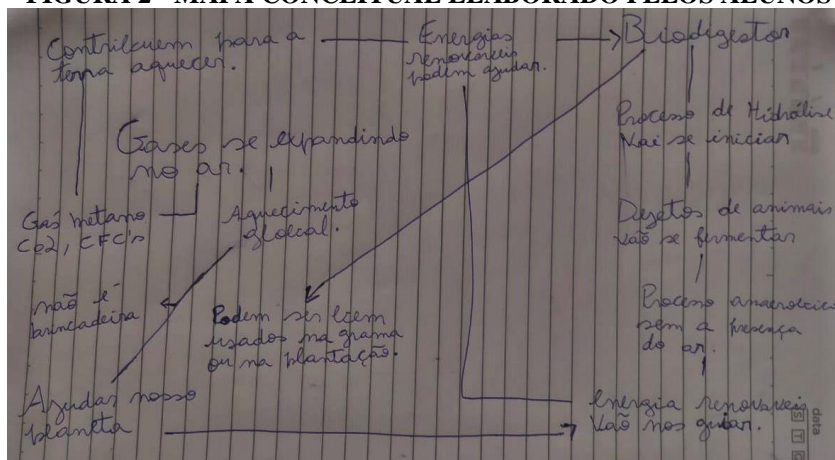 FIGURA 2 - MAPA CONCEITUAL ELABORADO PELOS ALUNOS
Contribuem para a
terra aquecer.
Energias
renováveis
podem ajudar.
Biodigestor
Gases se expandindo
no ar.
Processo de Hidrólise
Vai se iniciar
Gás metano
Co2, CFC's
Aquecimento
global.
Dejetos de animais
vão se fermentar
não é
brincadeira
Podem ser bem
usados na grama
ou na plantação.
Processo anaeróbico
sem a presença
do ar.
Ajudar nosso
planeta
energia renováveis
Vão nos guiar.
data
S T Q